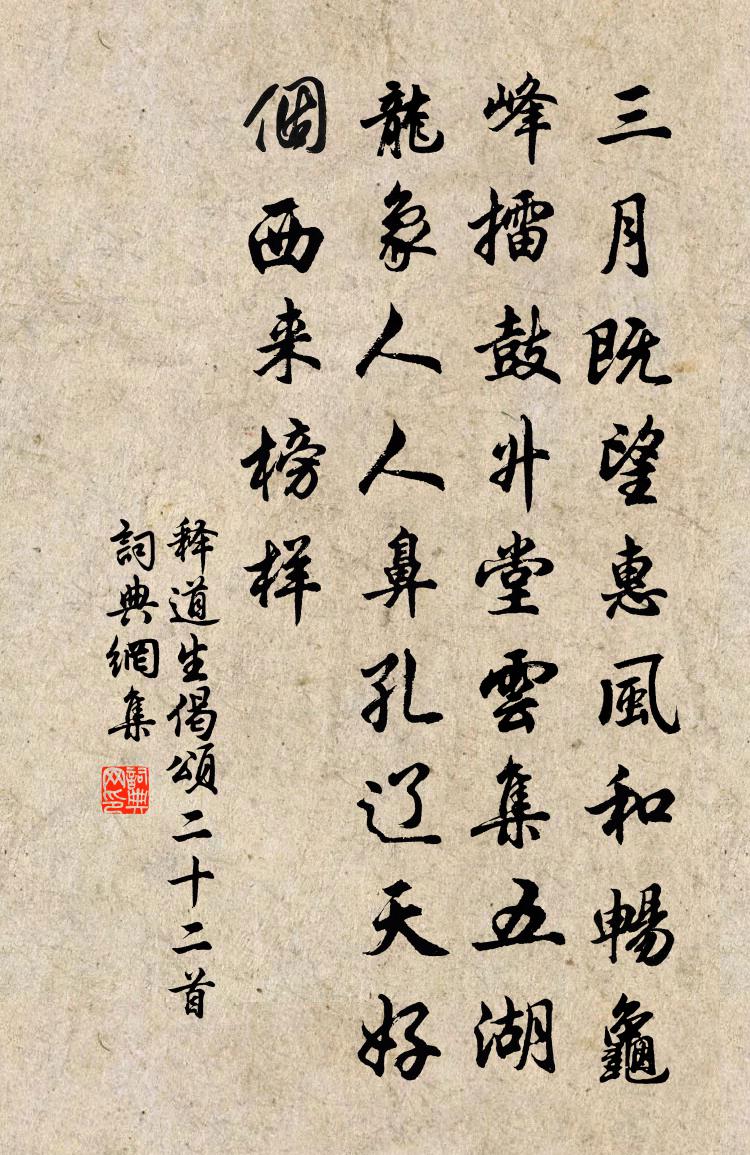 三月既望惠風和暢龜
峰擂鼓升堂雲集五湖
龍象人人鼻孔辽天好
個西来榜样
释道生偈頌二十二首
詞典網集
詞典网印